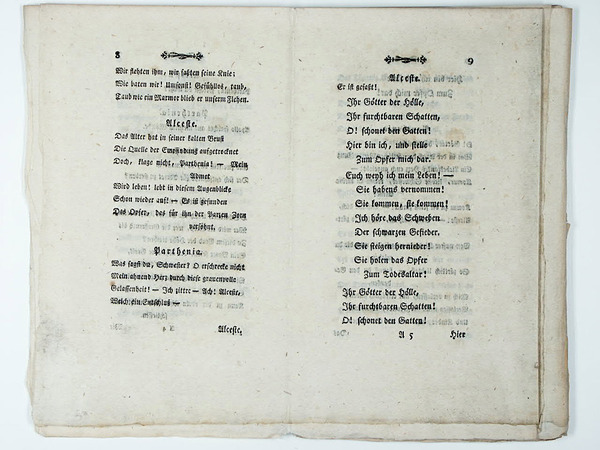 8
Wir flehten ihm, wir faßten seine Knie:
Wir baten wir! Umsonst! Gefühllos, taub,
Taub wie ein Marmor blieb er unserm Flehen.
Alceste.
Das Alter hat in seiner kalten Brust
Die Quelle der Empfindung aufgetrocknet
Doch, klage nicht, Parthenia! — Mein
Admet
Wird leben! lebt in diesem Augenblicke
Schon wieder auf! — Es ist gefunden
Das Opfer, das für ihn der Parzen Zorn
versöhnt.
Parthenia.
Was sagst du, Schwester? O erschrecke nicht
Mein ahnend Herz durch diese grauenvolle
Gelassenheit! — Ich zittre — Ach! Alceste,
Welch ein Entschluß —
Alceste,
9
Alceste.
Er ist gefaßt!
Ihr Götter der Hölle,
Ihr furchtbaren Schatten,
O! schonet den Gatten!
Hier bin ich, und stelle
Zum Opfer mich dar.
Euch weyh ich mein Leben! —
Sie habens vernommen!
Sie kommen, sie kommen!
Ich höre das Schweben
Der schwarzen Gefieder.
Sie steigen hernieder!
Sie holen das Opfer
Zum Todesaltar!
Ihr Götter der Hölle,
Ihr furchtbaren Schatten,
O! schonet den Gatten!
A 5 Hier